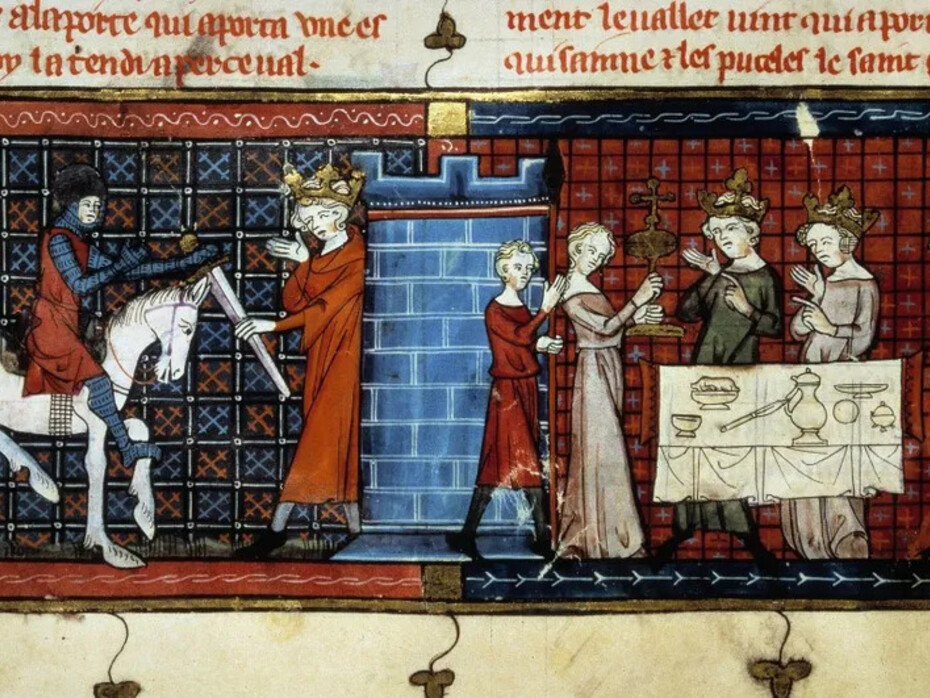 a la porte qui aporta une es
y la tendi a perceual.
ment le uallet uint qui apor
qui sainne & les puceles le saint